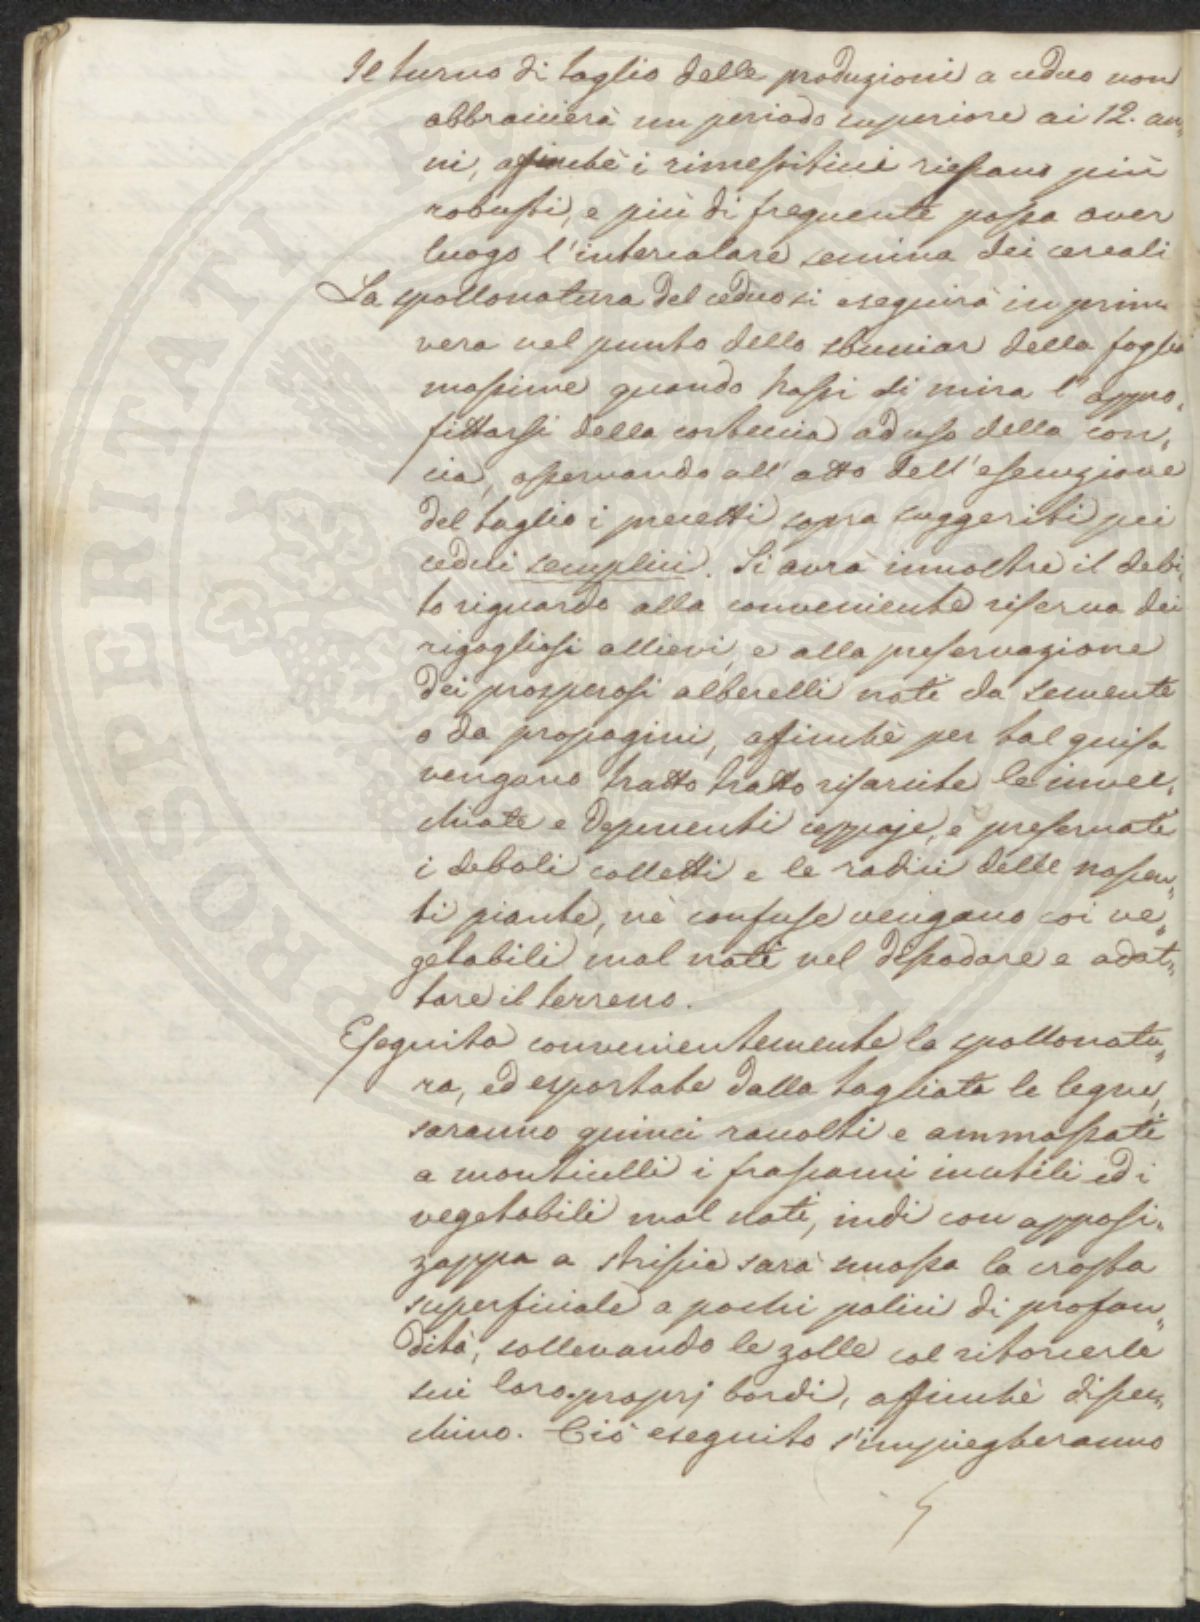 Il turno di taglio delle produzioni a ceduo non
abbraccierà un periodo superiore ai 12. an„
ni, affinchè i rimessiticci riescano più
robusti, e più di frequente possa aver
luogo l'intercalare semina dei cereali
La spollonatura del ceduo si eseguirà in prima
vera nel punto dello sbucciar della foglia
massime quando hassi di mira l'appro„
fittarsi della corteccia ad uso della con„
cia, osservando all'atto dell'esecuzione
del taglio i precetti sopra suggeriti pei
cedui semplici. Si avrà innoltre il debi„
to riguardo alla conveniente riserva dei
rigogliosi allievi, e alla preservazione
dei prosperosi alberelli nati da semente
o da propagini, affinchè per tal guisa
vengano tratto tratto risarcite le invec„
chiate e deperenti ceppaje, e preservate
i deboli colletti e le radici delle nascen„
ti piante, nè confuse vengano coi ve„
getabili mal nati nel dissodare e adat„
tare il terreno.
Eseguita convenientemente la spollonatu„
ra, ed esportate dalla tagliata le legne,
saranno quinci raccolti e ammassati
a monticelli i frascami inutili ed i
vegetabili mal nati, indi con apposi„
zappa a striscie sarà smossa la crosta
superficiale a pochi polici di profon„
dità, sollevando le zolle col ritorcerle
sui loro proprj bordi, affinchè dissec„
chino. Ciò eseguito s'impiegheranno
PROSPERITATI PUBLICAE